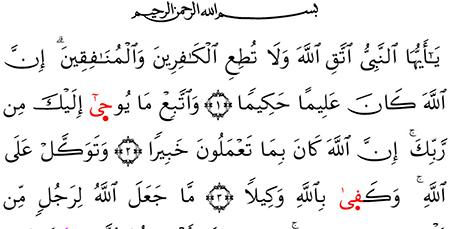 بِسْمِ اللَّهِ الرَّحْمَٰنِ الرَّحِيمِ
يَـٰٓأَيُّهَا النَّبِىُّ اتَّقِ اللَّهَ وَلَا تُطِعِ الْكَـٰفِرِينَ وَالْمُنَـٰفِقِينَ ۗ إِنَّ
اللَّهَ كَانَ عَلِيمًا حَكِيمًا ﴿١﴾ وَاتَّبِعْ مَا يُوحَىٰٓ إِلَيْكَ مِن
رَّبِّكَ ۚ إِنَّ اللَّهَ كَانَ بِمَا تَعْمَلُونَ خَبِيرًا ﴿٢﴾ وَتَوَكَّلْ عَلَى
اللَّهِ ۚ وَكَفَىٰ بِاللَّهِ وَكِيلًا ﴿٣﴾ مَّا جَعَلَ اللَّهُ لِرَجُلٍ مِّن